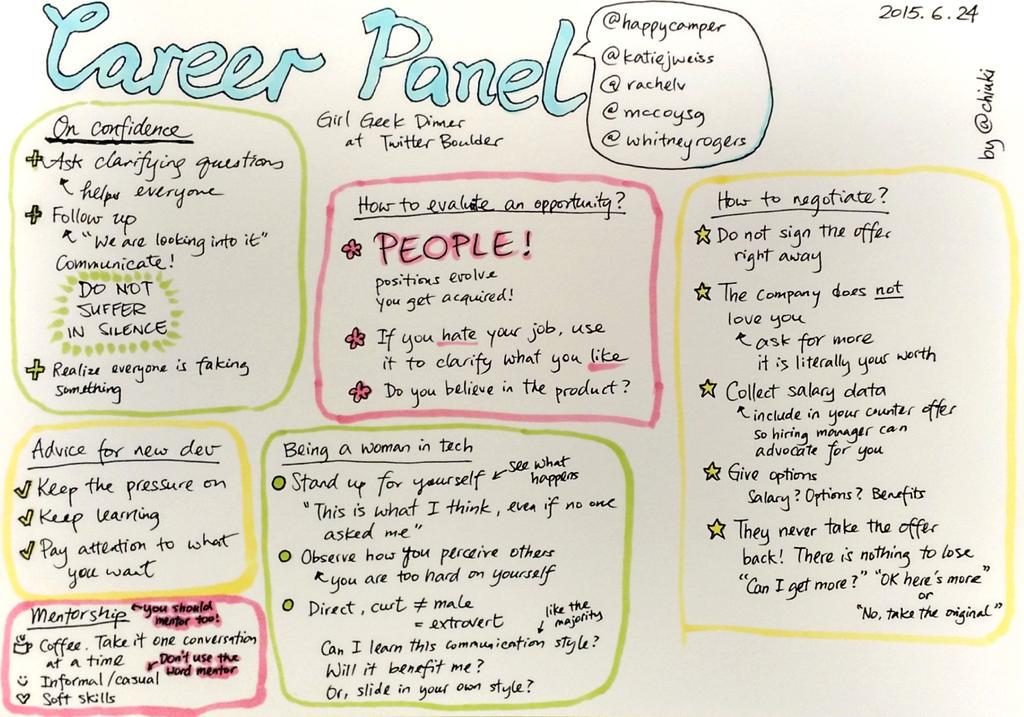 Career Panel
@happycamper
@katiejweiss
@rachelv
@mccoysg
@whitneyrogers
2015.6.24
by @chiuki
Girl Geek Dinner
at Twitter Boulder
On confidence
Ask clarifying questions
helps everyone
Follow up
"We are looking into it"
Communicate!
DO NOT
SUFFER
IN SILENCE
Realize everyone is faking
something
How to evaluate an opportunity?
PEOPLE!
positions evolve
you get acquired!
If you hate your job, use
it to clarify what you like
Do you believe in the product?
How to negotiate?
Do not sign the offer
right away
The company does not
love you
ask for more
it is literally your worth
Collect salary data
include in your counter offer
so hiring manager can
advocate for you
Give options
Salary? Options? Benefits
They never take the offer
back! There is nothing to lose
"Can I get more?" "OK here's more"
or
"No, take the original"
Advice for new dev
Keep the pressure on
Keep learning
Pay attention to what
you want
Being a woman in tech
Stand up for yourself
see what
happens
"This is what I think, even if no one
asked me"
Observe how you perceive others
you are too hard on yourself
Direct, curt ≠ male
= extrovert
like the
majority
Can I learn this communication style?
Will it benefit me?
Or, slide in your own style?
Mentorship
you should
mentor too!
Coffee. Take it one conversation
at a time
Don't use the
word mentor
Informal/casual
Soft skills